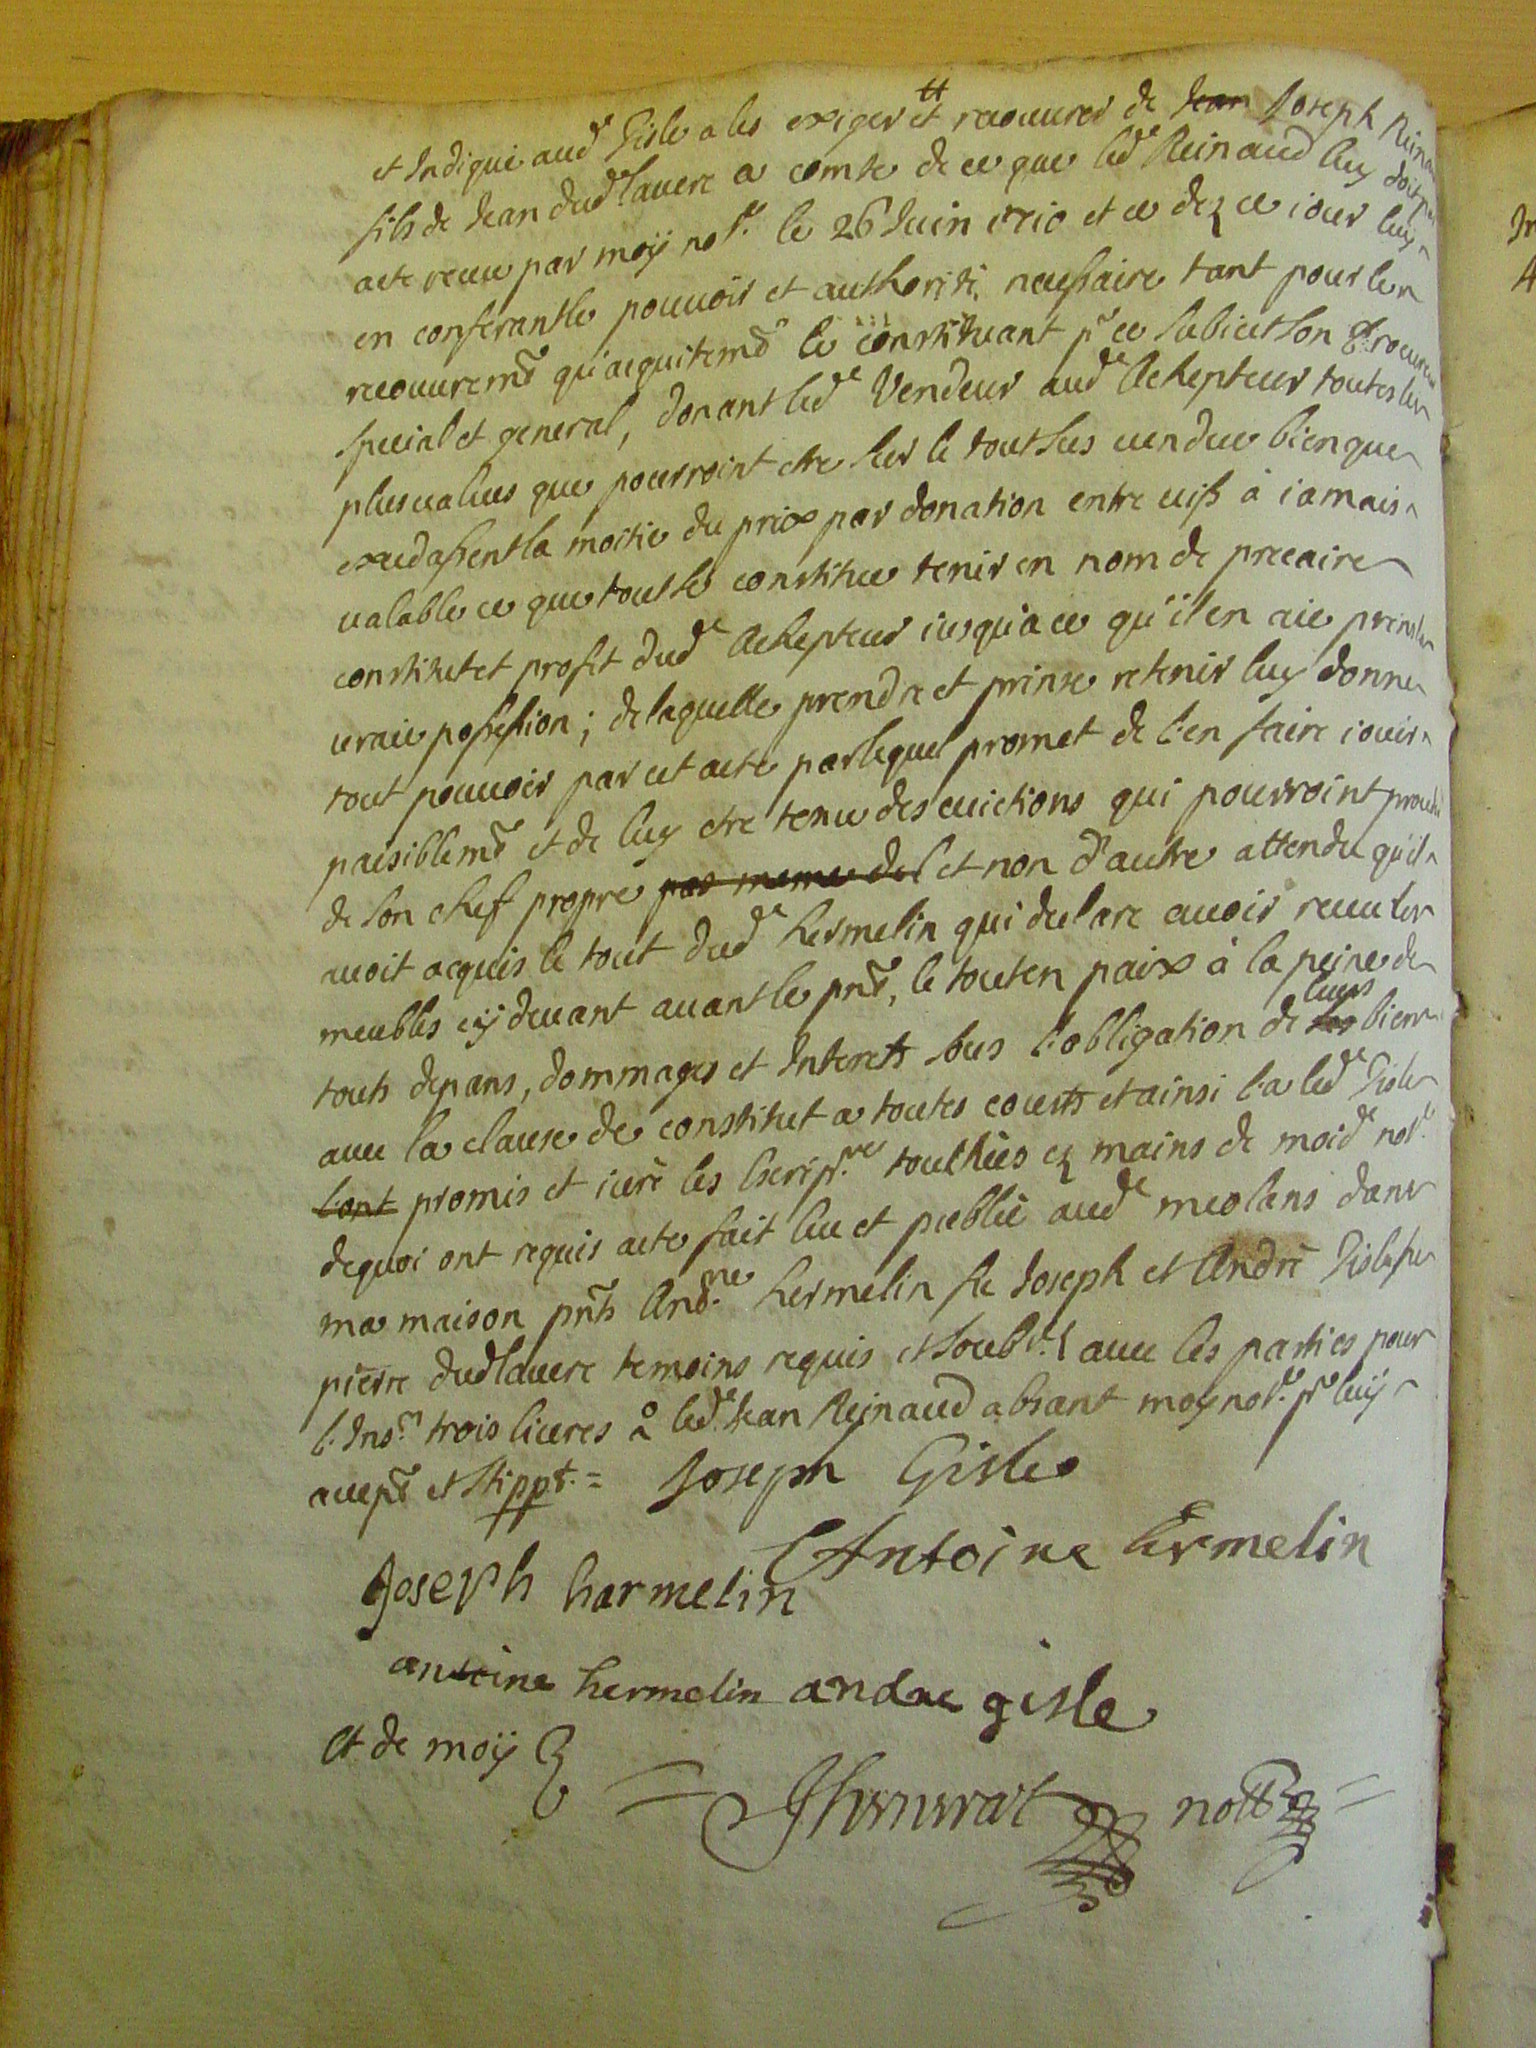 et Indique aud.e Gisle a les exiger et recouurer de Jean Joseph Reina
fils de Jean dud. lauere a comte de ce que led.e Reinaud luy doit par
acte receu par moy not.e le 26 Juin 1710 et ce dez ce iour luy
en conferant le pouuoir et authorité necessaire tant pour le
recouurem.t qu'aquitem.t le constituant p.r ce subiet son procureur
special et general, donant led.e Vendeur aud.e Achepteur toutes les
plusualues que pourroint etre sur le tout sus vendu bien que
excedassent la moitié du prix par donation entre vifs à iamais
valable ce que tout se constitue tenir en nom de precaire
constitut et profit dud.e Achepteur iusqu'a ce qu'il en aie prins la
vraie possession; de laquelle prendre et prinse retenir luy donne
tout pouuoir par cet acte par lequel promet de l'en faire iouir
paisiblem.t et de luy etre tenu des euictions qui pourroint prouenir
de son chef propre par meme del et non d'autre attendu qu'il
auoit acquis le tout dud.e hermelin qui declare auoir receu les
meubles cy deuant auant le pnt, le tout en paix à la peine de
touts depans, dommages et Interets sous l'obligation de ses leurs biens
auec la clause de constitut a toutes courts et ainsi l'a led.e Gisle
l'ont promis et iuré les Escrip.res touchées ez mains de moid.e not.e
dequoi ont requis acte fait leu et publié aud.e meolans dans
ma maison pnts Ant.ne hermelin fe Joseph et André Gisle fe
pierre dud lauere temoins requis et soub.nes auec les parties pour
l'Ins.on trois liures 2 led.e Jean Reinaud absant moy not.e p.r luy
accep.t et stipp.t = Joseph Gisle
Antoine Ermelin
Joseph harmelin
antoine hermelin andre gisle
Et de moy
not